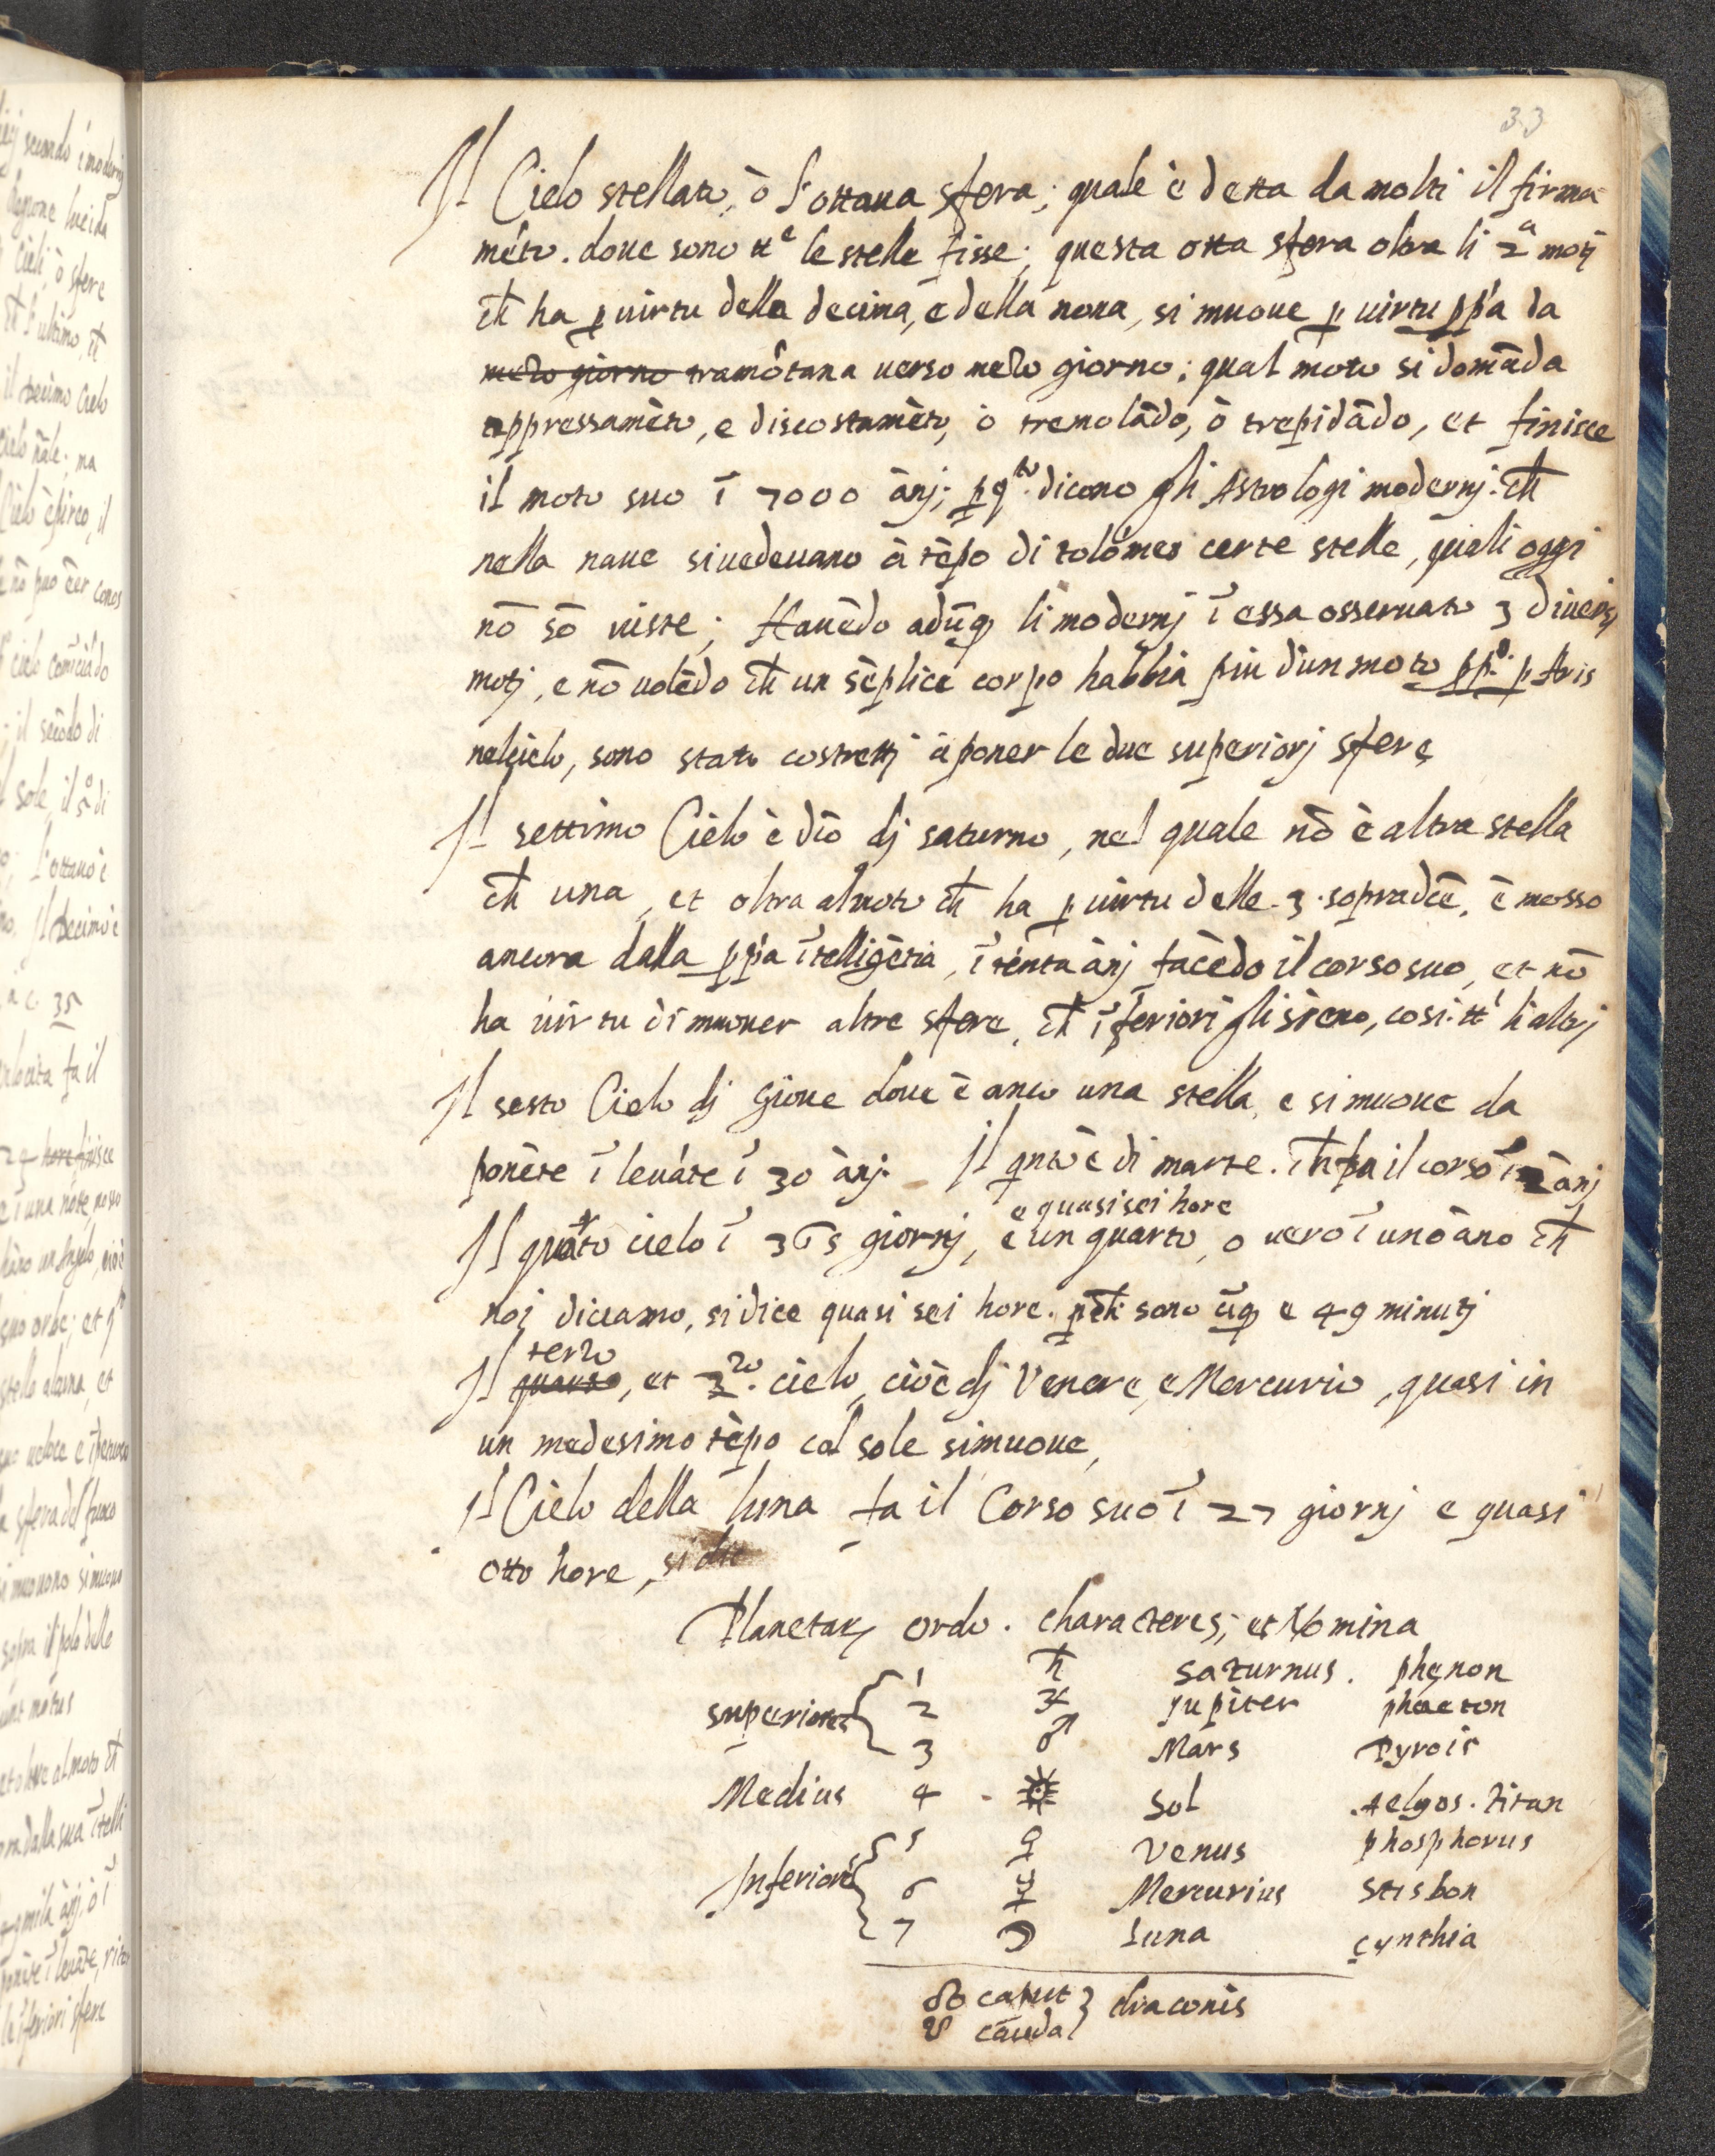 33
Il Cielo stellato, ò l'ottaua sfera; quale è detta da molti il firma-
mēto. doue sono tt^e le stelle fisse; questa otta sfera oltra li 2 motj
ch̄ ha ꝑ uirtu della decima, e della nona, si muoue ꝑ uirtu ꝓp'a da
mezo giorno tramōtana uerso mezo giorno; qual moto si domāda
appressamēto, e discostamēto, ò tremolādo, ò trepidādo, et finisce
il moto suo ī 7000 ānj; ꝑ q^to. dicono gli Astrologi modernj. ch̄
nella naue si uedeuano à tēpo di tolomeo certe stelle, quali oggi
nō sō uiste; Hauēdo adūq li modernj ī essa osseruato 3 diuersj
motj, e nō uolēdo ch̄ un sēplice corpo habbia piu d'un moto ꝓp^o. ꝑ Aris
nel cielo, sono stato costrettj à poner le due superiorj sfere
Il settimo Cielo è dīo dj saturno, nel quale nō è altra stella
ch̄ una, et oltra al moto ch̄ ha ꝑ uirtu delle .3. sopradēē, è mosso
ancora dalla ꝓp'a ītelligētia, ī trēta ānj facēdo il corso suo, et nō
ha uirtu di muouer altre sfere, ch̄ īferiori gli sieno, cosi tt^i li altrj
Il sesto Cielo dj Gioue doue è anco una stella, e si muoue da
ponēte ī leuāte ī 30 ānj. Il qnto è di marte. ch̄ fa il corso ī 2 ānj
e quasi sei hore
Il quarto cielo ī 365 giornj, e un quarto, o uero ī uno āno ch̄
noi diciamo, si dice quasi sei hore. ꝑch̄ sono cīq e 49 minutj
terzo
Il quarto, et 2^do. cielo, cioè dj Venere, e Mercurio, quasi in
un medesimo tēpo col sole si muoue,
Il Cielo della luna fa il Corso suo ī 27 giornj e quasi
otto hore, si
Planetarꝝ ordo. characteres, et Nomina
superiores { 1 ♄ saturnus. phęnon
2 ♃ Jupiter phaeton
3 ♂ Mars Pyrois
Medius 4 ☉ Sol .Aelyos. Titan
Inferiores { 5 ♀ Venus phosphorus
6 ☿ Mercurius Stisbon
7 ☽ Luna cynthia
☊ caput } draconis
☋ cauda